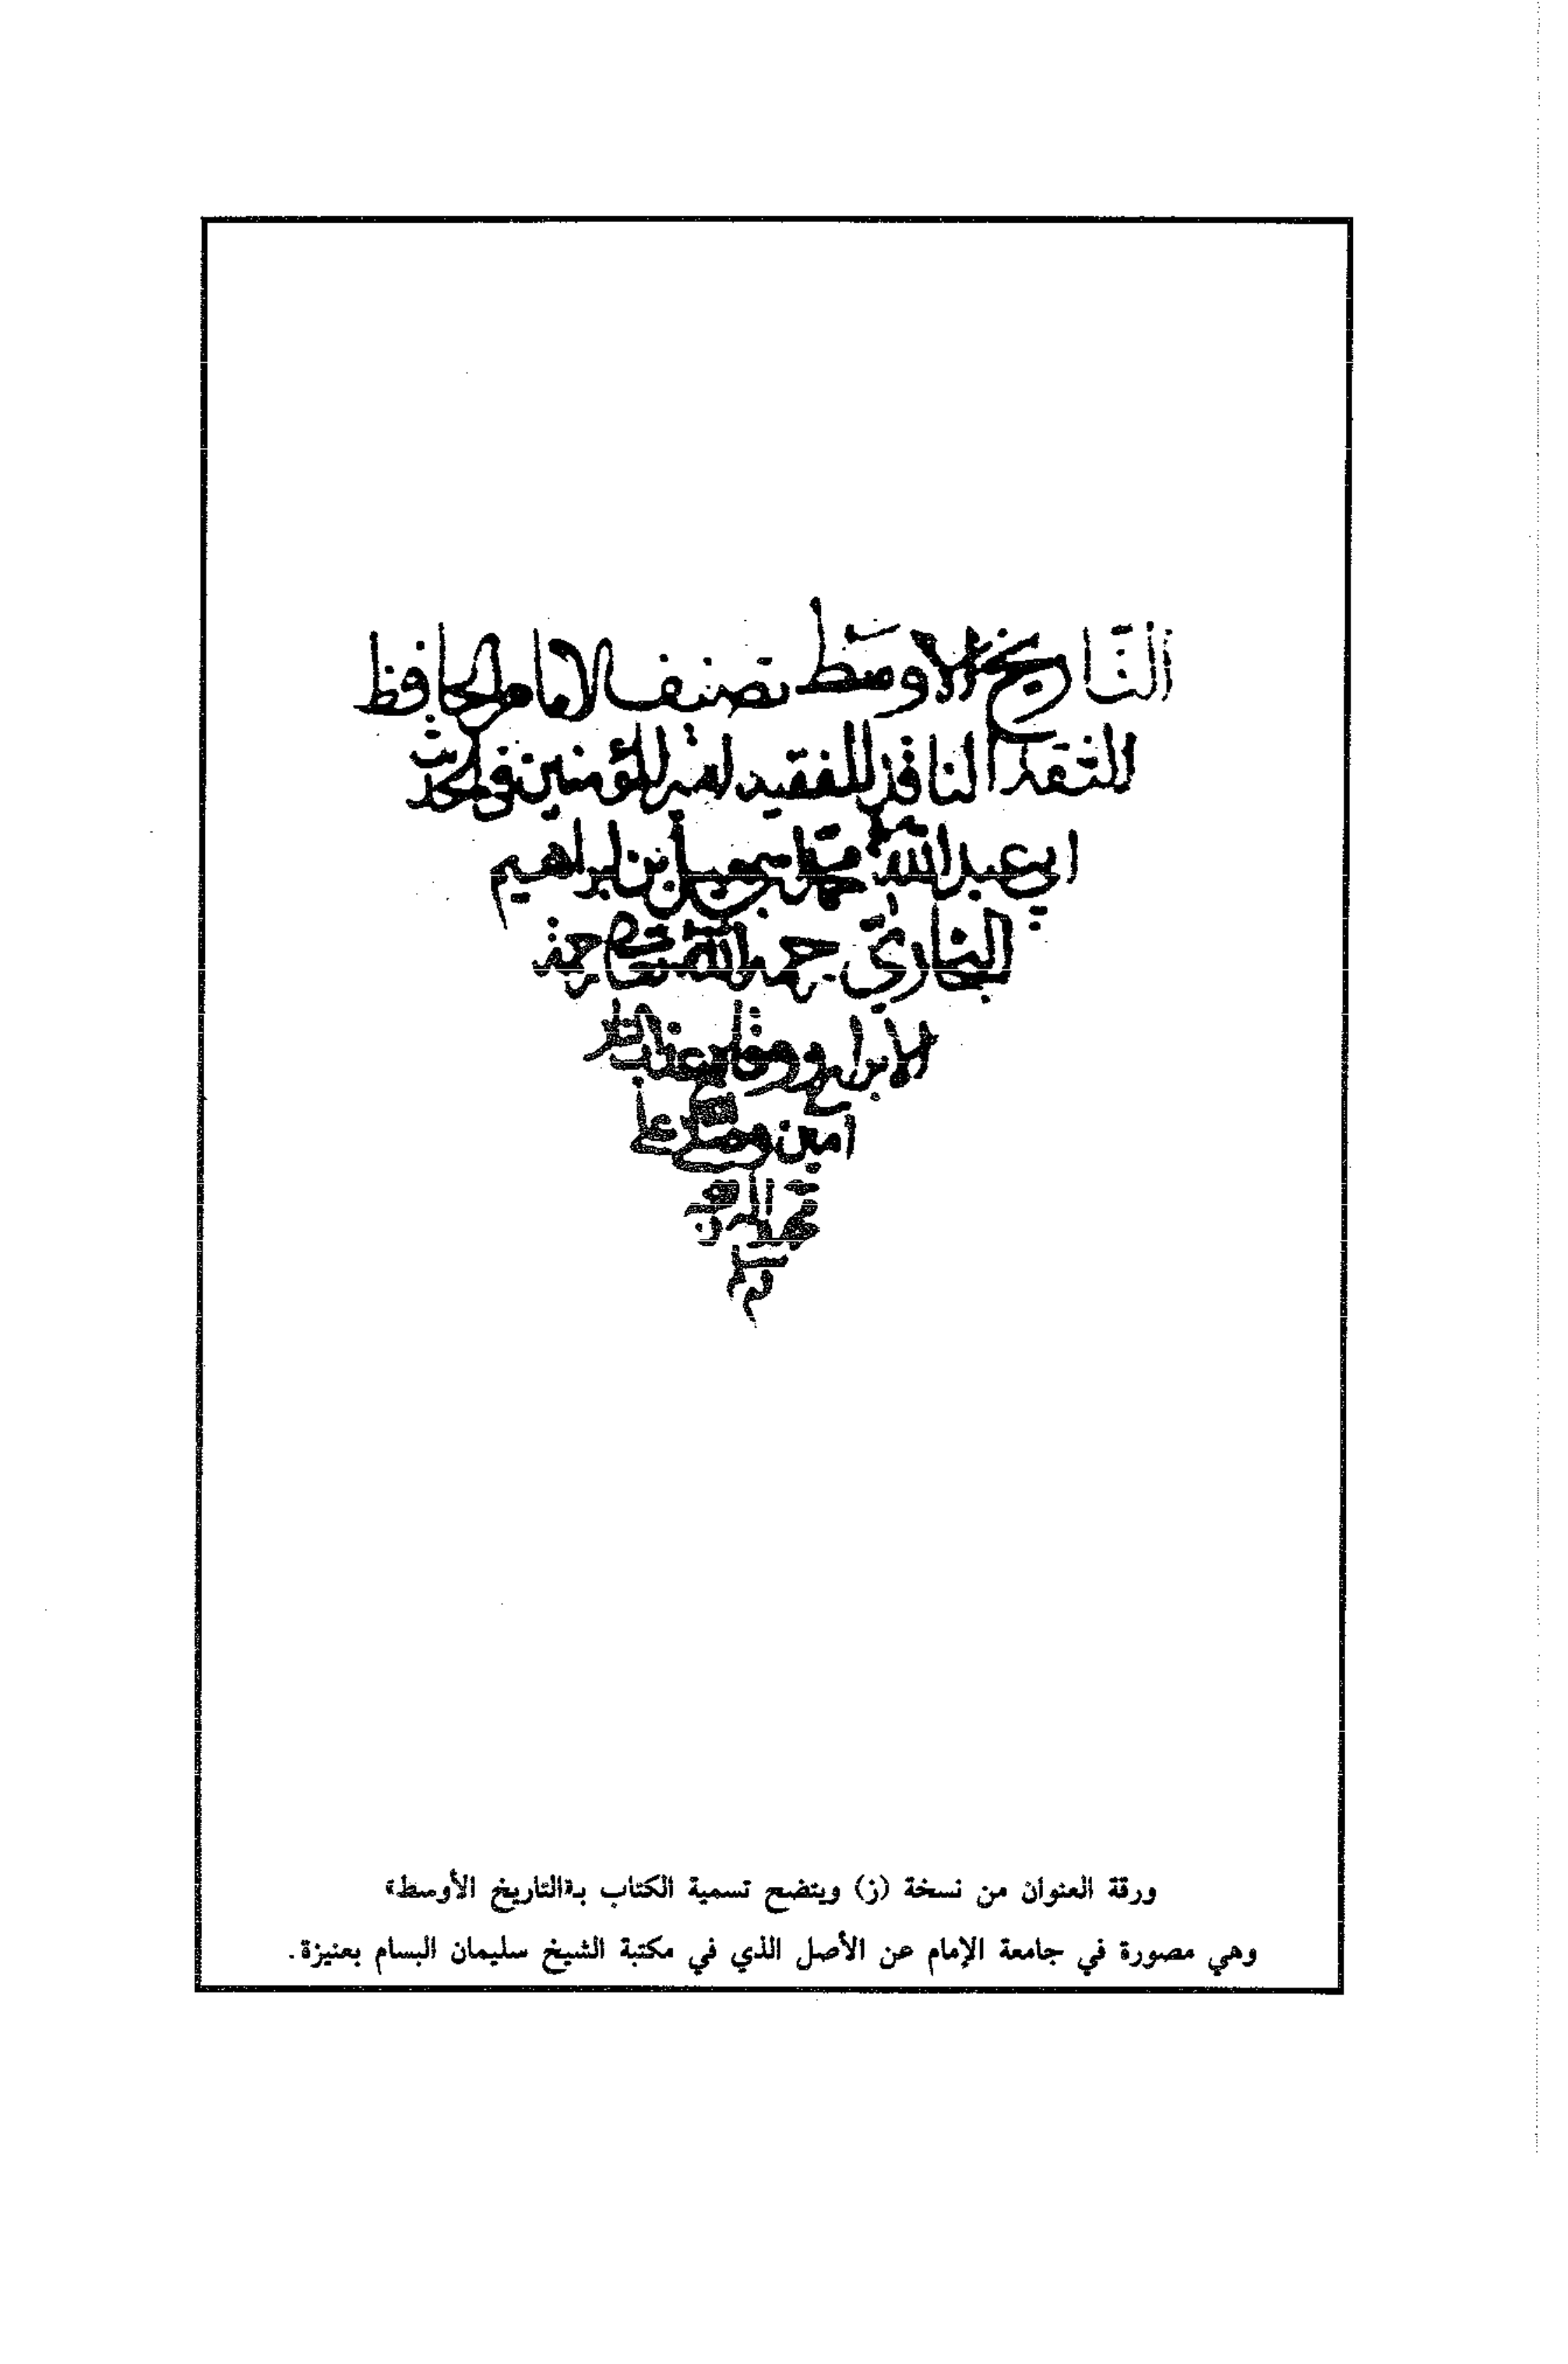 التاريخ الاوسط تصنيف الامام الحافظ
الثقة الناقد الفقيه امير المؤمنين في الحديث
ابي عبد الله محمد بن اسمعيل بن ابراهيم
البخاري رحمه الله تعالى رحمة
الابرار ووقاه عذاب النار
امين وصلى الله على
محمد واله وصحبه
وسلم
ورقة العنوان من نسخة (ز) ويتضح تسمية الكتاب بـ«التاريخ الأوسط»
وهي مصورة في جامعة الإمام عن الأصل الذي في مكتبة الشيخ سليمان البسام بعنيزة.